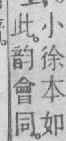 小徐本如
此。韵會同。